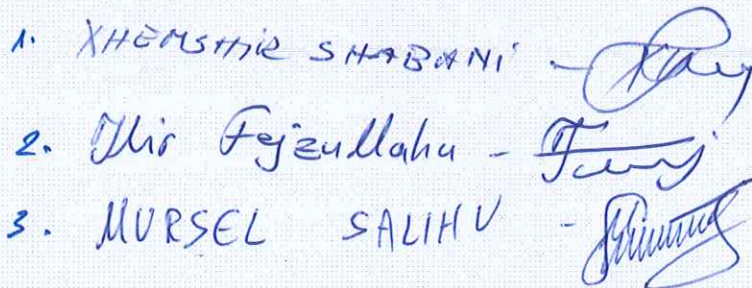 1. XHEMSHIR SHABANI -
2. Ilir Fejzullahu -
3. MURSEL SALIHU -